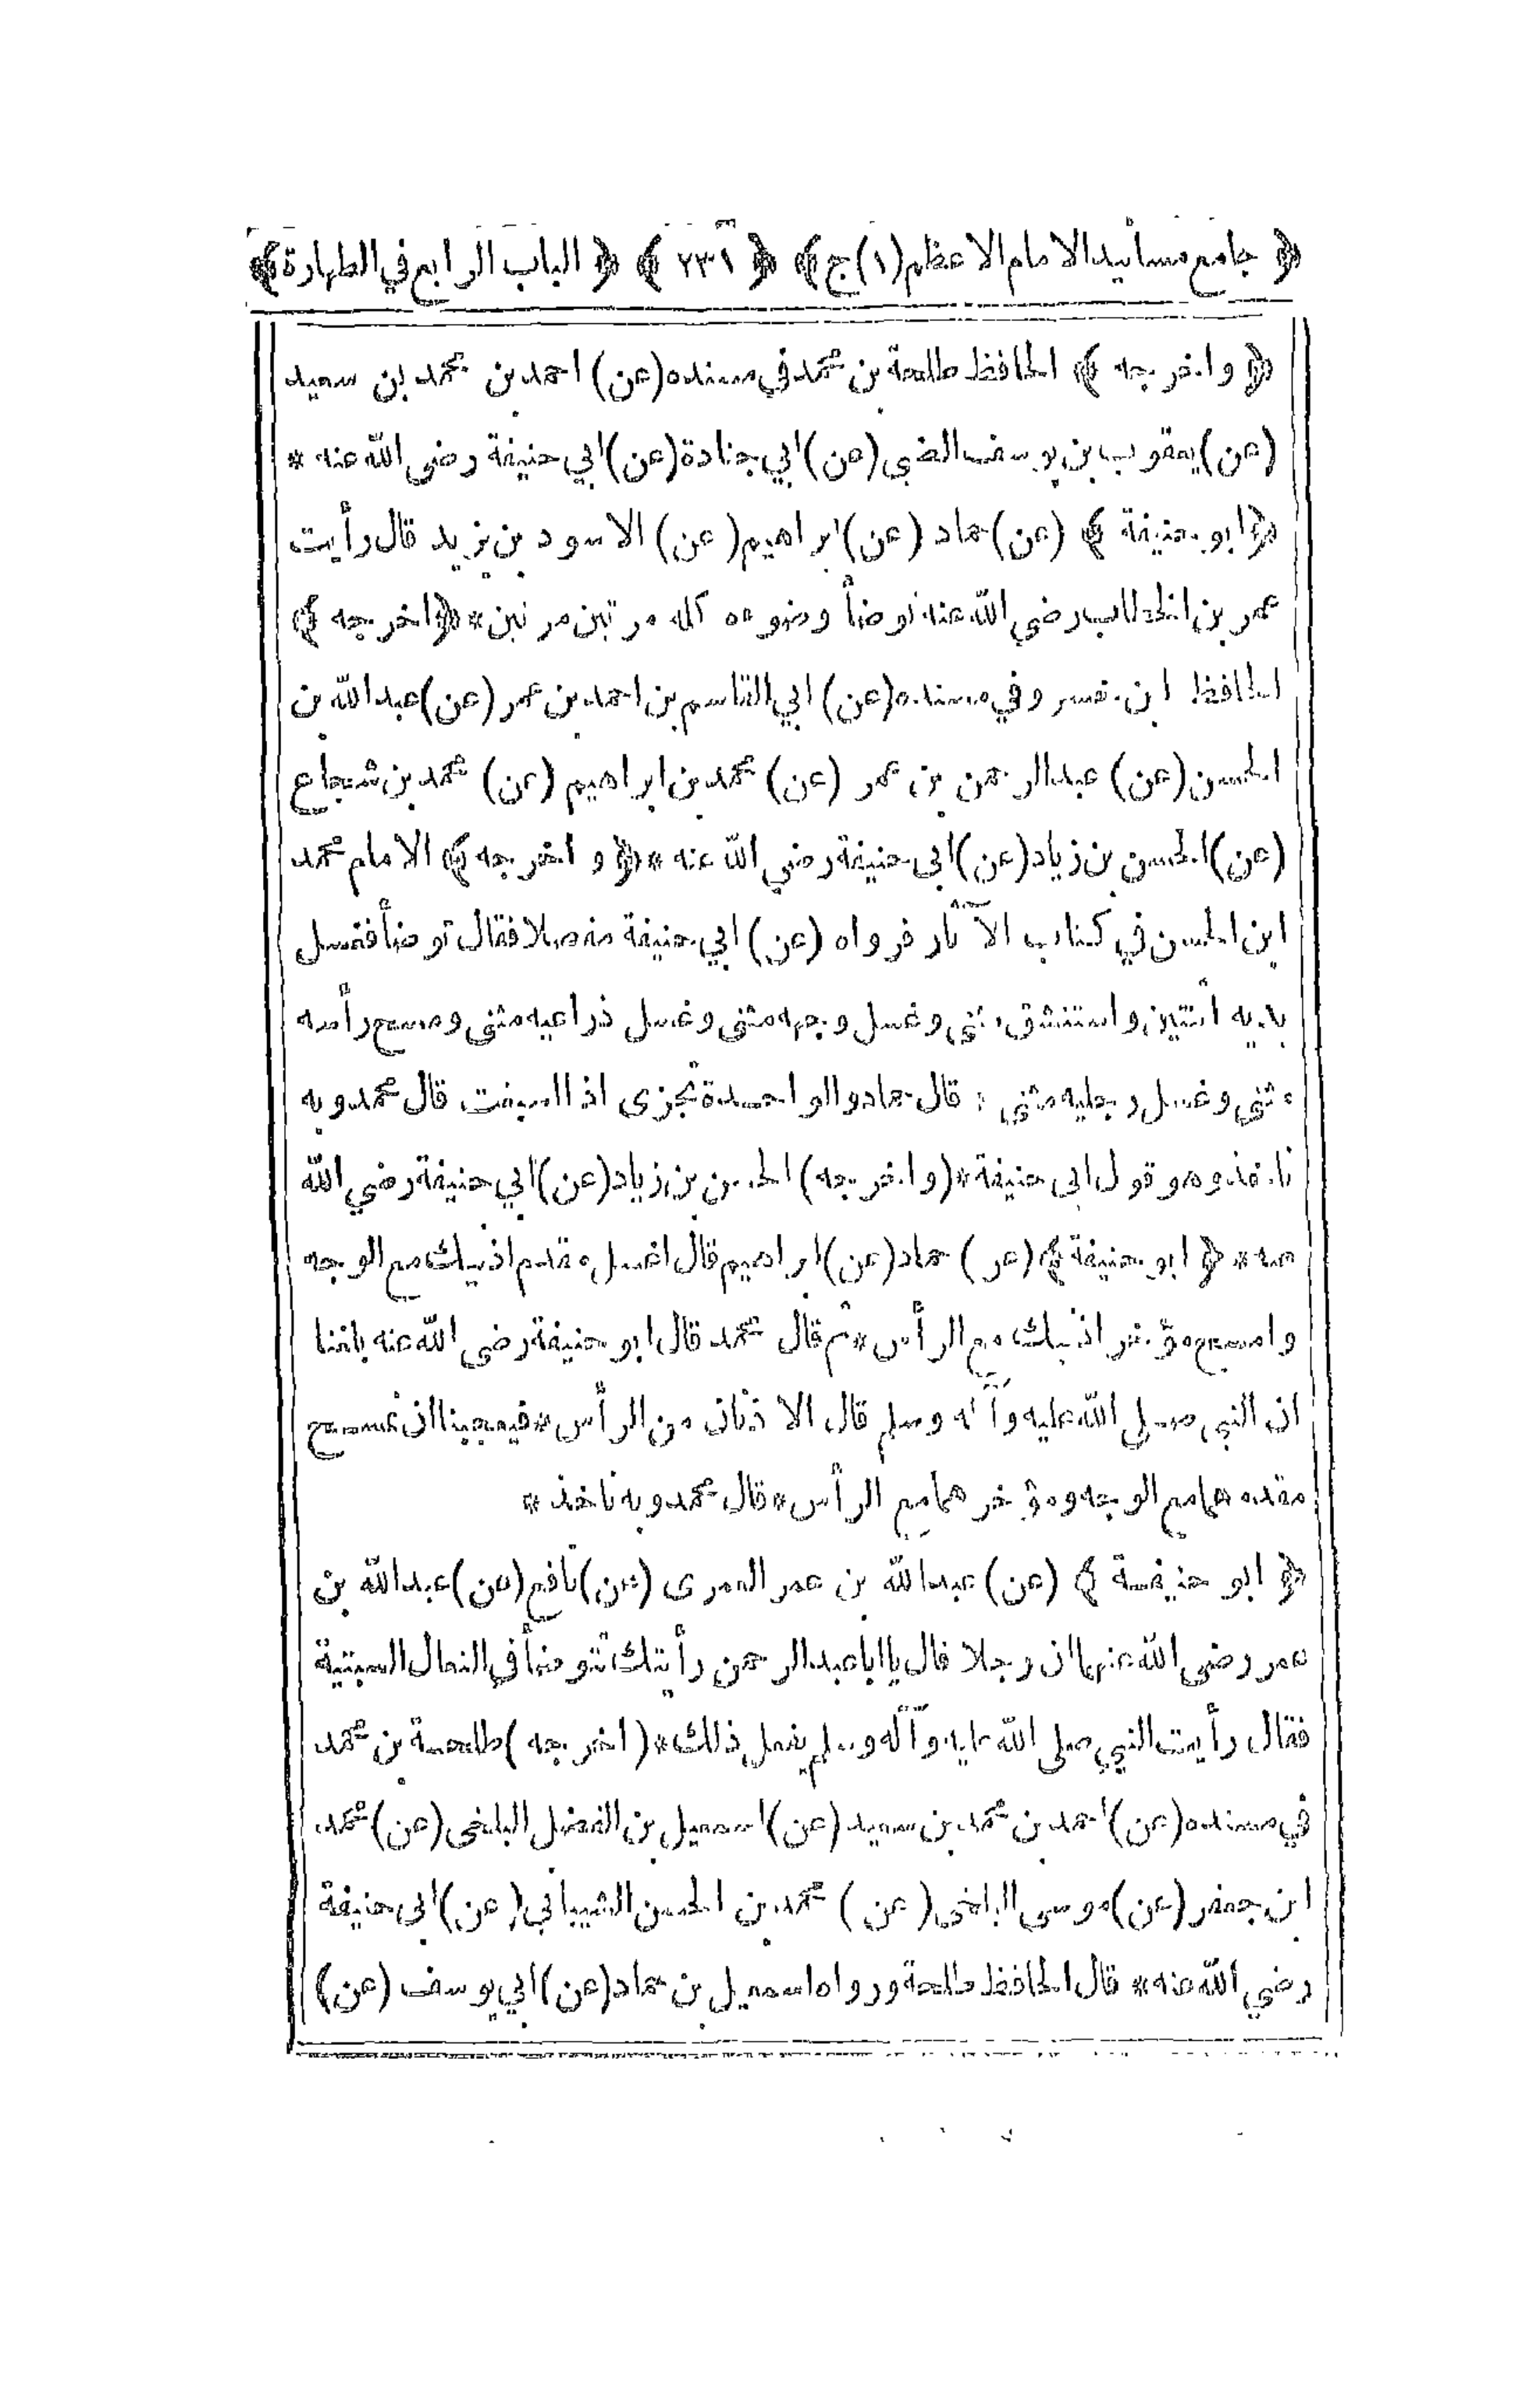 ﴿ جامع مسانيد الامام الاعظم (١) ج ﴾ ﴿ ٢٣١ ﴾ ﴿ الباب الرابع في الطهارة ﴾
﴿ واخرجه ﴾ الحافظ طلحة بن محمد في مسنده (عن) احمد بن محمد بن سعيد
(عن) يعقوب بن يوسف الضبي (عن) ابي جنادة (عن) ابي حنيفة رضي الله عنه *
﴿ ابو حنيفة ﴾ (عن) حماد (عن) ابراهيم (عن) الاسود بن يزيد قال رأيت
عمر بن الخطاب رضي الله عنه توضأ وضوءه كله مرتين مرتين * ﴿ اخرجه ﴾
الحافظ ابن خسرو في مسنده (عن) ابي القاسم بن احمد بن عمر (عن) عبد الله بن
الحسن (عن) عبد الرحمن بن عمر (عن) محمد بن ابراهيم (عن) محمد بن شجاع
(عن) الحسن بن زياد (عن) ابي حنيفة رضي الله عنه * ﴿ واخرجه ﴾ الامام محمد
ابن الحسن في كتاب الآثار فرواه (عن) ابي حنيفة مفصلا فقال توضأ فغسل
يديه اثنتين واستنشق مثنى وغسل وجهه مثنى وغسل ذراعيه مثنى ومسح رأسه
مثنى وغسل رجليه مثنى * قال حماد والواحدة تجزى اذا اسبغت قال محمد وبه
ناخذ وهو قول ابي حنيفة * (واخرجه) الحسن بن زياد (عن) ابي حنيفة رضي الله
عنه * ﴿ ابو حنيفة ﴾ (عن) حماد (عن) ابراهيم قال اغسل مقدم اذنيك مع الوجه
وامسح مؤخر اذنيك مع الرأس * ثم قال محمد قال ابو حنيفة رضي الله عنه بلغنا
ان النبي صلى الله عليه وآله وسلم قال الاذنان من الرأس * فيعجبنا ان نمسح
مقدمهما مع الوجه ومؤخرهما مع الرأس * قال محمد وبه ناخذ *
﴿ ابو حنيفة ﴾ (عن) عبد الله بن عمر العمرى (عن) نافع (عن) عبد الله بن
عمر رضي الله عنهما ان رجلا قال يا ابا عبد الرحمن رأيتك تتوضأ في النعال السبتية
فقال رأيت النبي صلى الله عليه وآله وسلم يفعل ذلك * (اخرجه) طلحة بن محمد
في مسنده (عن) احمد بن محمد بن سعيد (عن) اسمعيل بن الفضل البلخى (عن) محمد
ابن جعفر (عن) موسى البلخى (عن) محمد بن الحسن الشيباني (عن) ابي حنيفة
رضي الله عنه * قال الحافظ طلحة ورواه اسمعيل بن حماد (عن) ابي يوسف (عن)